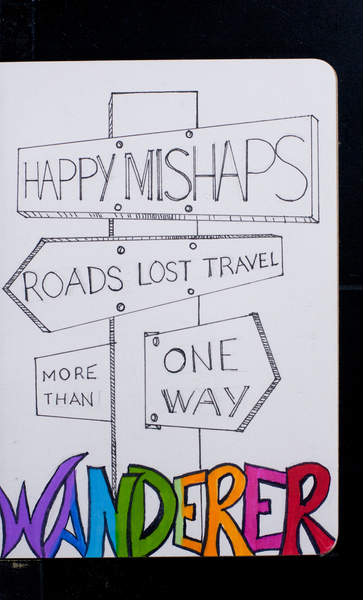 HAPPY MISHAPS
ROADS LOST TRAVEL
MORE
THAN
ONE
WAY
WANDERER